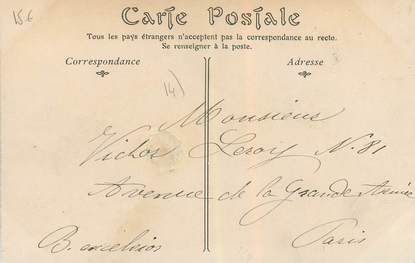 15-6
Carte Postale
Tous les pays étrangers n'acceptent pas la correspondance au recto.
Se renseigner à la poste.
Correspondance
Adresse
14)
Monsieur
Victor Leroy N. 81
Avenue de la Grande Armée
B. excelsior
Paris